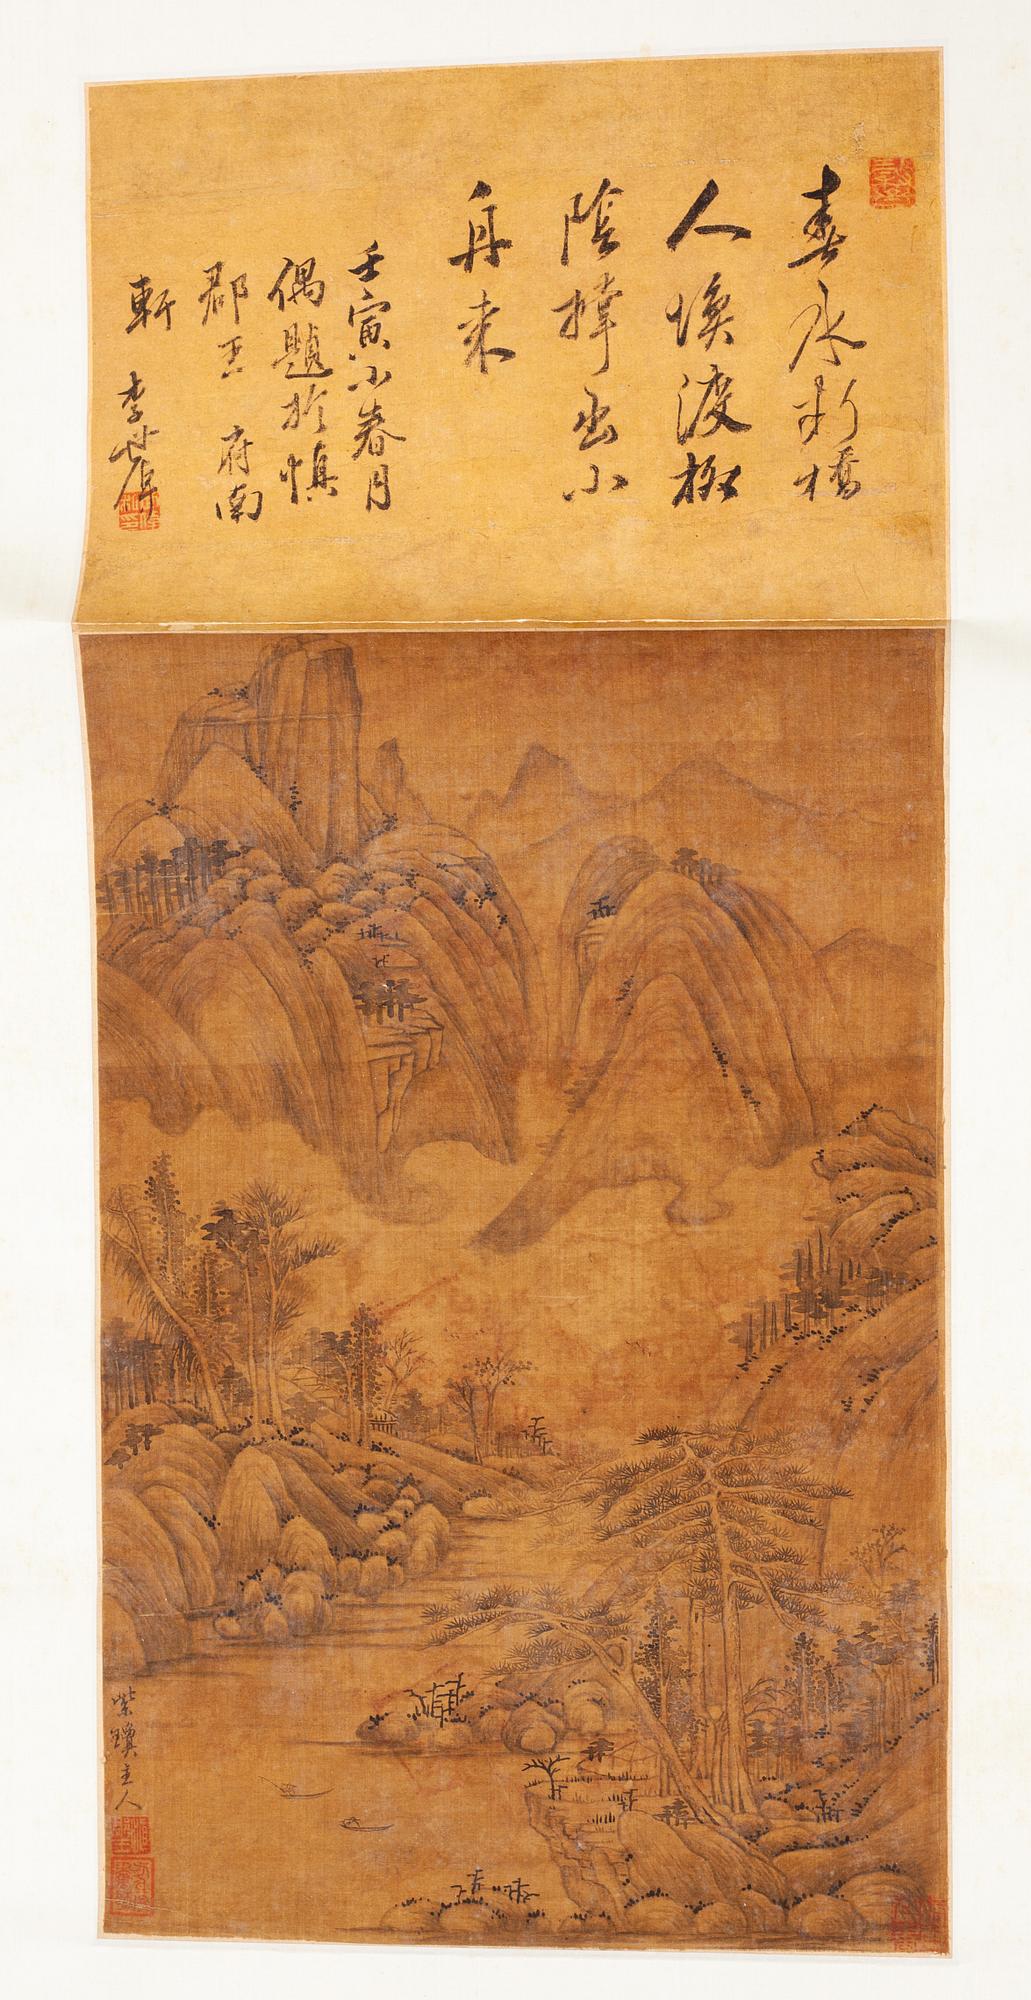 春水断橋
人喚渡柳
陰撑出小
舟来
壬寅小春月
偶題於慎
郡王府南
軒 李世倬
紫瓊主人